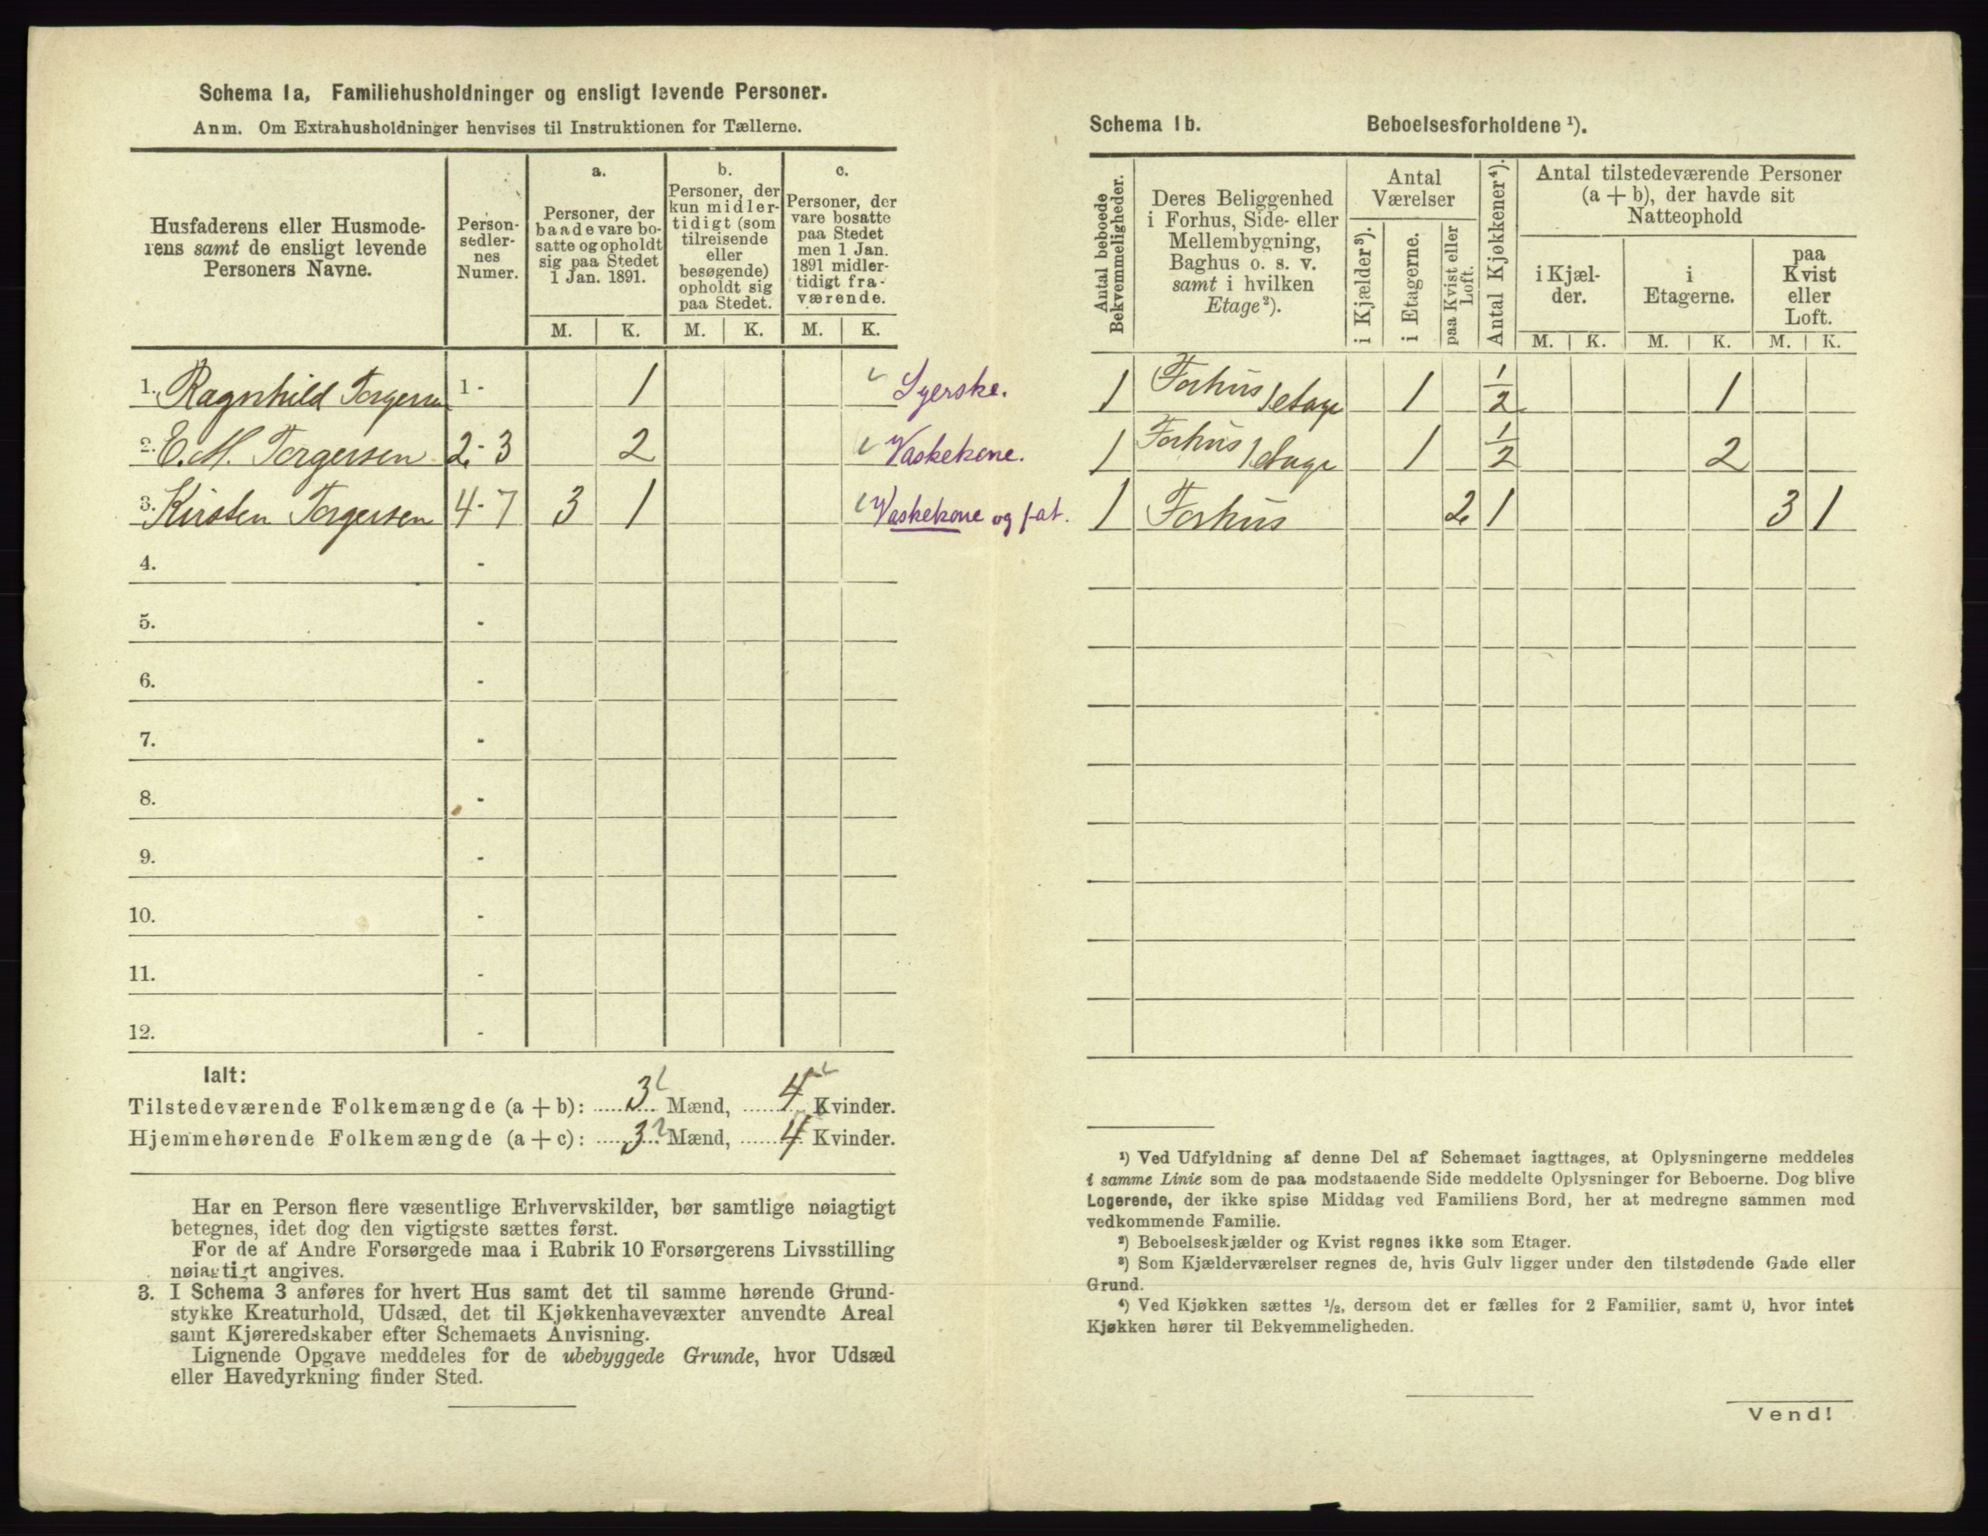 Schema 1a, Familiehusholdninger og ensligt levende Personer.
Anm. Om Extrahusholdninger henvises til Instruktionen for Tællerne.
Husfaderens eller Husmode-
rens samt de ensligt levende
Personers Navne.
Person-
sedler-
nes
Numer.
a.
Personer, der
baade vare bo-
satte og opholdt
sig paa Stedet
1 Jan. 1891.
b.
Personer, der
kun midler-
tidigt (som
tilreisende
eller
besøgende)
opholdt sig
paa Stedet.
c.
Personer, der
vare bosatte
paa Stedet
men 1 Jan.
1891 midler-
tidigt fra-
værende.
M. K. M. K. M. K.
1. Ragnhild Torgersen 1 - 1 Syerske.
2. E. M. Torgersen 2 - 3 2 Vaskekone.
3. Kirsten Torgersen 4 - 7 3 1 Vaskekone og fat.
4. -
5. -
6. -
7. -
8. -
9. -
10. -
11. -
12. -
Ialt:
Tilstedeværende Folkemængde (a + b): 3 Mænd, 4 Kvinder.
Hjemmehørende Folkemængde (a + c): 3 Mænd, 4 Kvinder.
Har en Person flere væsentlige Erhvervskilder, bør samtlige nøiagtigt
betegnes, idet dog den vigtigste sættes først.
For de af Andre Forsørgede maa i Rubrik 10 Forsørgerens Livsstilling
nøiagtigt angives.
3. I Schema 3 anføres for hvert Hus samt det til samme hørende Grund-
stykke Kreaturhold, Udsæd, det til Kjøkkenhavevæxter anvendte Areal
samt Kjøreredskaber efter Schemaets Anvisning.
Lignende Opgave meddeles for de ubebyggede Grunde, hvor Udsæd
eller Havedyrkning finder Sted.
Schema 1b. Beboelsesforholdene ¹).
Antal beboede
Bekvemmeligheder.
Deres Beliggenhed
i Forhus, Side- eller
Mellembygning,
Baghus o. s. v.
samt i hvilken
Etage²).
Antal
Værelser
i Kjælder³).
i Etagerne.
paa Kvist eller
Loft.
Antal Kjøkkener⁴).
Antal tilstedeværende Personer
(a + b), der havde sit
Natteophold
i Kjæl-
der.
i
Etagerne.
paa
Kvist
eller
Loft.
M. K. M. K. M. K.
1 Forhus 1 etage 1 ½ 1
1 Forhus 1 etage 1 ½ 2
1 Forhus 2 1 3 1
¹) Ved Udfyldning af denne Del af Schemaet iagttages, at Oplysningerne meddeles
i samme Linie som de paa modstaaende Side meddelte Oplysninger for Beboerne. Dog blive
Logerende, der ikke spise Middag ved Familiens Bord, her at medregne sammen med
vedkommende Familie.
²) Beboelseskjælder og Kvist regnes ikke som Etager.
³) Som Kjælderværelser regnes de, hvis Gulv ligger under den tilstødende Gade eller
Grund.
⁴) Ved Kjøkken sættes ½, dersom det er fælles for 2 Familier, samt 0, hvor intet
Kjøkken hører til Bekvemmeligheden.
Vend!